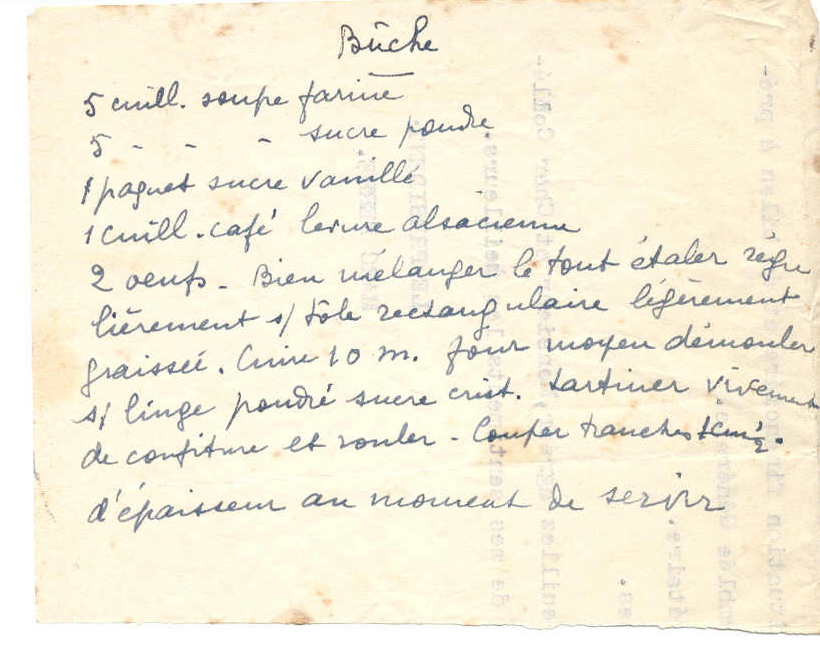 Bûche
5 cuill. soupe farine
5 - - - sucre poudre
1 paquet sucre vanillé
1 cuill. café levure alsacienne
2 oeufs - Bien mélanger le tout étaler régu
lièrement s/ tôle rectangulaire légèrement
graissée. Cuire 10 m. four moyen démouler
s/ linge poudré sucre crist. tartiner vivement
de confiture et rouler - Couper tranches 1 cm ½
d'épaisseur au moment de servir